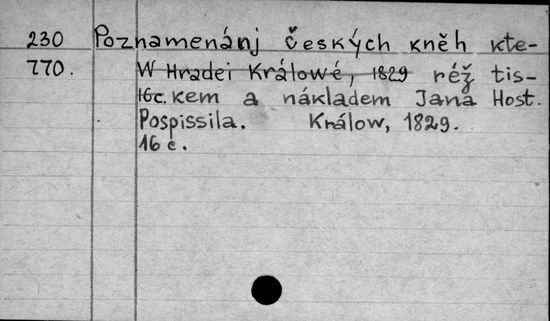 230 Poznamenánj českých kněh kte-
770. W Hradei Králowé, 1829 réž tis-
16c. kem a nákladem Jana Host.
Pospissila. Králow, 1829.
16 c.